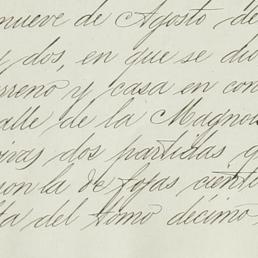 nueve de Agosto de
y dos, en que se dió
rreno y casa en con
alle de la Magnol
ivas dos partidas q
son la de fojas cient
la del tomo décimo